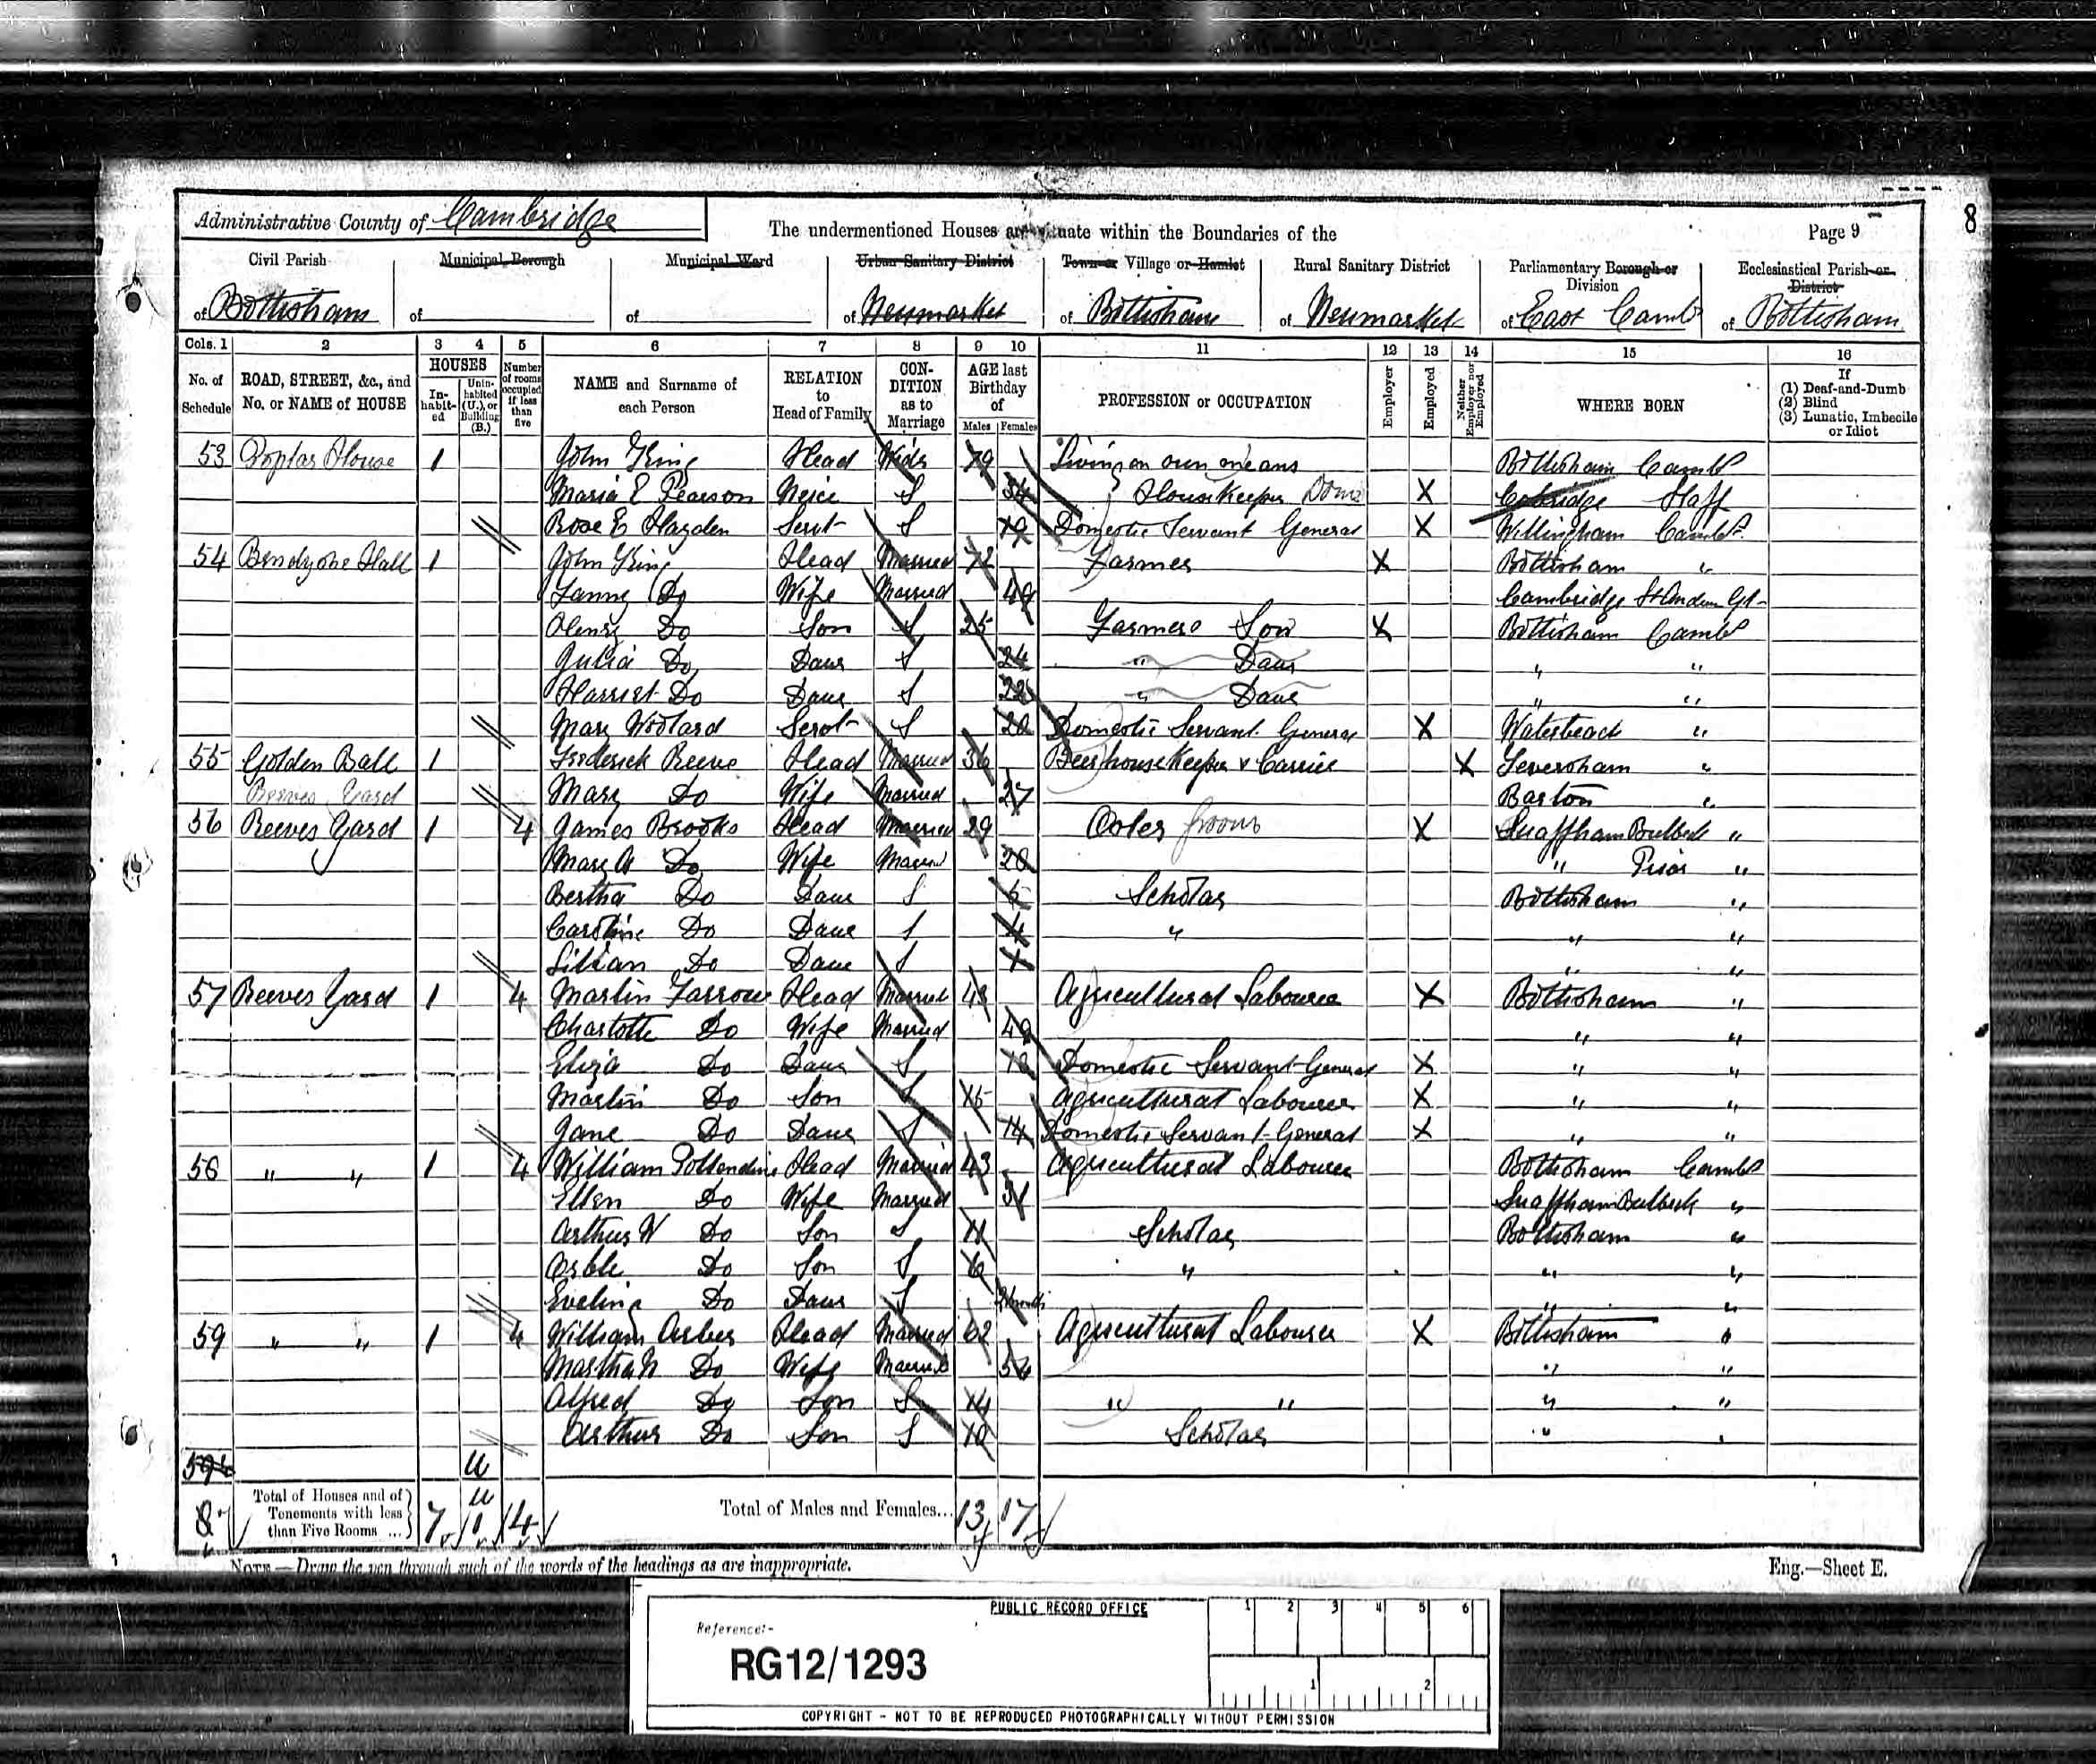 Administrative County of Cambridge
The undermentioned Houses are situate within the Boundaries of the
Page 9
8
Civil Parish of Bottisham
Municipal Borough of
Municipal Ward of
Urban Sanitary District of Newmarket
Town or Village or Hamlet of Bottisham
Rural Sanitary District of Newmarket
Parliamentary Borough or Division of East Cambs
Ecclesiastical Parish or District of Bottisham
Cols. 1 2 3 4 5 6 7 8 9 10 11 12 13 14 15 16
No. of Schedule
ROAD, STREET, &c., and No. or NAME of HOUSE
HOUSES
Inhabited
Uninhabited (U.), or Building (B.)
Number of rooms occupied if less than five
NAME and Surname of each Person
RELATION to Head of Family
CONDITION as to Marriage
AGE last Birthday of
Males Females
PROFESSION or OCCUPATION
Employer
Employed
Neither Employer nor Employed
WHERE BORN
If (1) Deaf-and-Dumb (2) Blind (3) Lunatic, Imbecile or Idiot
53 Poplar House 1 John King Head Widr 79 Living on own means Bottisham Cambs
Maria E Pearson Neice S 34 HouseKeeper Dom X Cobridge Staff
Rose E Hayden Servt S 19 Domestic Servant General X Willingham Cambs
54 Bendyshe Hall 1 John King Head Married 72 Farmer X Bottisham "
Fanny Do Wife Married 49 Cambridge St Andrew Gt
Henry Do Son S 25 Farmers Son X Bottisham Cambs
Julia Do Daur S 24 " Daur " "
Harriet Do Daur S 22 " Daur " "
Mary Woolard Servt S 20 Domestic Servant General X Waterbeach "
55 Golden Ball 1 Frederick Reeve Head Married 36 BeerhouseKeeper & Carrier X Teversham "
Reeves Yard Mary Do Wife Married 27 Barton "
56 Reeves Yard 1 4 James Brooks Head Married 29 Osler groom X Swaffham Bulbeck "
Mary A Do Wife Married 28 " Prior "
Bertha Do Daur S 5 Scholar Bottisham "
Caroline Do Daur S 4 " " "
Lilian Do Daur S 1 " "
57 Reeves Yard 1 4 Martin Farrow Head Married 43 Agricultural Labourer X Bottisham "
Charlotte Do Wife Married 42 " "
Eliza Do Daur S 18 Domestic Servant General X " "
Martin Do Son S 15 Agricultural Labourer X " "
Jane Do Daur S 14 Domestic Servant General X " "
58 " " 1 4 William Head Married 43 Agricultural Labourer Bottisham Cambs
Ellen Do Wife Married 31 Swaffham Bulbeck "
Arthur W Do Son S 11 Scholar Bottisham "
Do Son S 6 " " "
Eveline Do Daur S 2 months " "
59 " " 1 4 William Arber Head Married 62 Agricultural Labourer X Bottisham "
Martha Do Wife Married 56 " "
Alfred Do Son S 14 " " " "
Arthur Do Son S 10 Scholar " "
U
8 Total of Houses and of Tenements with less than Five Rooms ... 7 U 1 4 Total of Males and Females... 13 17
NOTE.—Draw the pen through such of the words of the headings as are inappropriate.
Eng.—Sheet E.
PUBLIC RECORD OFFICE
1 2 3 4 5 6
Reference:-
RG12/1293
1 2
COPYRIGHT - NOT TO BE REPRODUCED PHOTOGRAPHICALLY WITHOUT PERMISSION